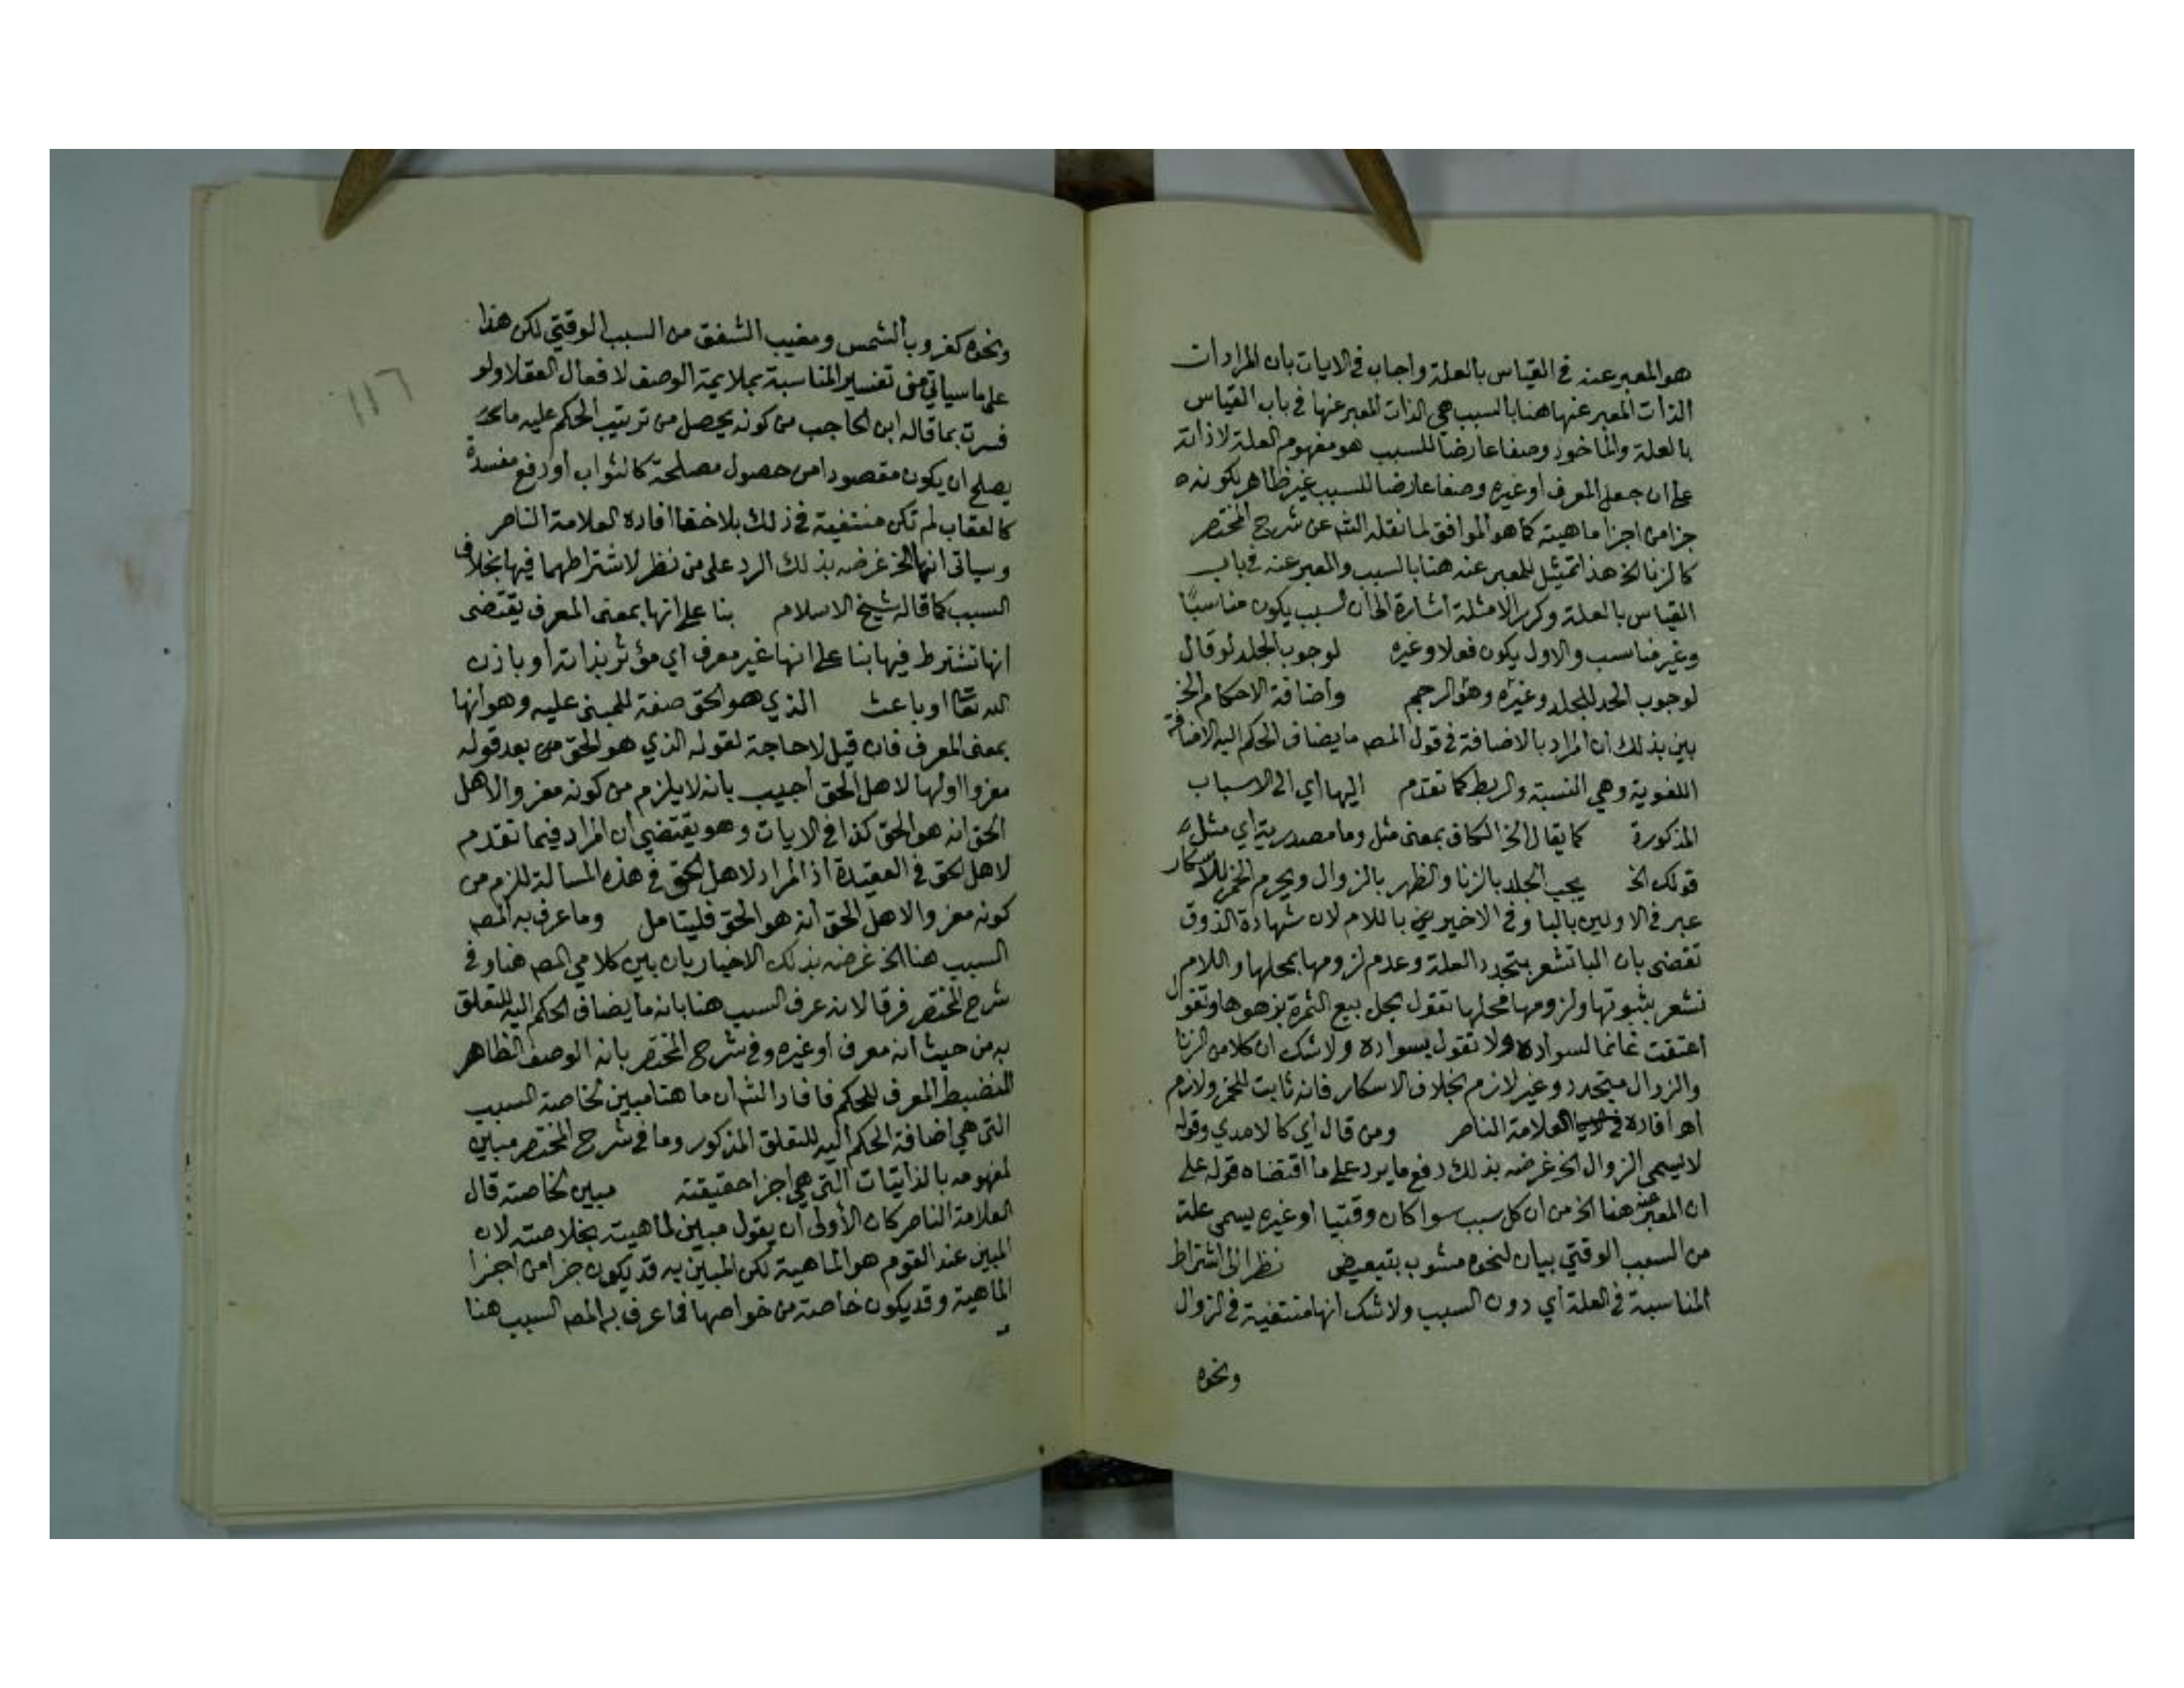 هو المعبر عنه في القياس بالعلة واجاب في الايات بان المراد ان
الذات المعبر عنها هنا بالسبب هي الذات المعبر عنها في باب القياس
بالعلة والماخوذ وصفا عارضا للسبب هو مفهوم العلة لا ذاته
على ان جعل المعرف او غيره وصفا عارضا للسبب غير ظاهر بكونه
جزا من اجزا ماهيته كما هو الموافق لما نقله الشم عن شرح المختصر
كالزنا الخ هذا تمثيل للمعبر عنه هنا بالسبب والمعبر عنه في باب
القياس بالعلة وكرر الامثلة اشارة الى ان السبب يكون مناسبا
وغير مناسب والاول يكون فعلا وغيره لوجوب الجلد لو قال
لوجوب الحد للجلد وغيره وهو الرجم واضافة الاحكام الخ
بين بذلك ان المراد بالاضافة في قول المصـ ما يضاف الحكم اليه الاضافة
اللغوية وهي النسبة والربط كما تقدم اليها اي الى الاسباب
المذكورة كما يقال الخ الكاف بمعنى مثل وما مصدرية اي مثل
قولك الخ يجب الجلد بالزنا والظهر بالزوال ويحرم الخمر للاسكار
عبر في الاولين بالبا وفي الاخيرين باللام لان شهادة الذوق
تقضى بان البا تشعر بتجدد العلة وعدم لزومها بمحلها واللام
تشعر بثبوتها ولزومها محلها تقول يحل بيع الثمرة بزهوها وتقول
اعتقت غانما لسواده ولا تقول بسواده ولا شك ان كلا من الزنا
والزوال متجدد وغير لازم بخلاف الاسكار فانه ثابت للخمر ولازم
اهـ افاده العلامة الناصر ومن قال اي كالامدي وقوله
لا يسمى الزوال الخ غرضه بذلك دفع ما يرد على ما اقتضاه قوله على
ان المعبر عنه هنا الخ من ان كل سبب سوا كان وقتيا او غيره يسمى علة
من السبب الوقتي بيان لنحوه مشوب بتبعيض نظرا الى اشتراط
المناسبة في العلة اي دون السبب ولا شك انها منتفية في الزوال
ونحوه
١١٦
ونحوه كغروب الشمس ومغيب الشفق من السبب الوقتي لكن هذا
على ما سياتي من تفسير المناسبة بملايمة الوصف لافعال العقلا ولو
فسرت بما قاله ابن الحاجب من كونه يحصل من ترتيب الحكم عليه ما
يصلح ان يكون مقصودا من حصول مصلحة كالثواب او دفع مفسدة
كالعقاب لم تكن منتفية في ذلك بلا خفا افاده العلامة الناصر
وسياتي انها الخ غرضه بذلك الرد على من نظر لاشتراطهما فيها بخلاف
السبب كما قاله شيخ الاسلام بنا على انها بمعنى المعرف يقتضى
انها تشترط فيها بنا على انها غير معرف اي مؤثر بذاته او باذن
الله تعا او باعث الذي هو الحق صفة للمبنى عليه وهو انها
بمعنى المعرف فان قيل لا حاجة لقوله الذي هو الحق من بعد قوله
معزوا اولها لاهل الحق اجيب بانه لا يلزم من كونه معزوا لاهل
الحق انه هو الحق كذا في الايات وهو يقتضي ان المراد فيما تقدم
لاهل الحق في العقيدة اذ المراد لاهل الحق في هذه المسالة للزم من
كونه معزوا لاهل الحق انه هو الحق فليتامل وما عرف به المصـ
السبب هنا الخ غرضه بذلك الاخبار بان بين كلامي المصـ هنا وفي
شرح المختصر فرقا لانه عرف السبب هنا بانه ما يضاف الحكم اليه للتعلق
به من حيث انه معرف او غيره وفي شرح المختصر بانه الوصف الظاهر
المنضبط المعرف للحكم فافاد الشم ان ما هنا مبين لخاصة السبب
التي هي اضافة الحكم اليه للتعلق المذكور وما في شرح المختصر مبين
لمفهومه بالذاتيات التي هي اجزا حقيقته مبين لخاصته قال
العلامة الناصر كان الأولى ان يقول مبين لماهيته بخلاصته لان
المبين عند القوم هو الماهية لكن المبين به قد يكون جزا من اجزا
الماهية وقد يكون خاصة من خواصها فما عرف به المصـ السبب هنا